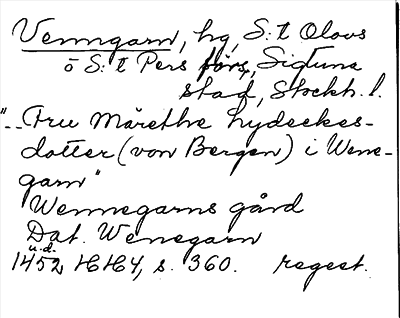 Venngarn, hg, S:t Olovs
o S:t Pers förs, Sigtuna
stad, Stockh. l.
"-- Fru Märethe hydeckes-
dotter (von Bergen) i Wene-
garn"
Wennegarns gård
Dat. Wenegarn
u.d.
1452 HH4, s. 360. regest.